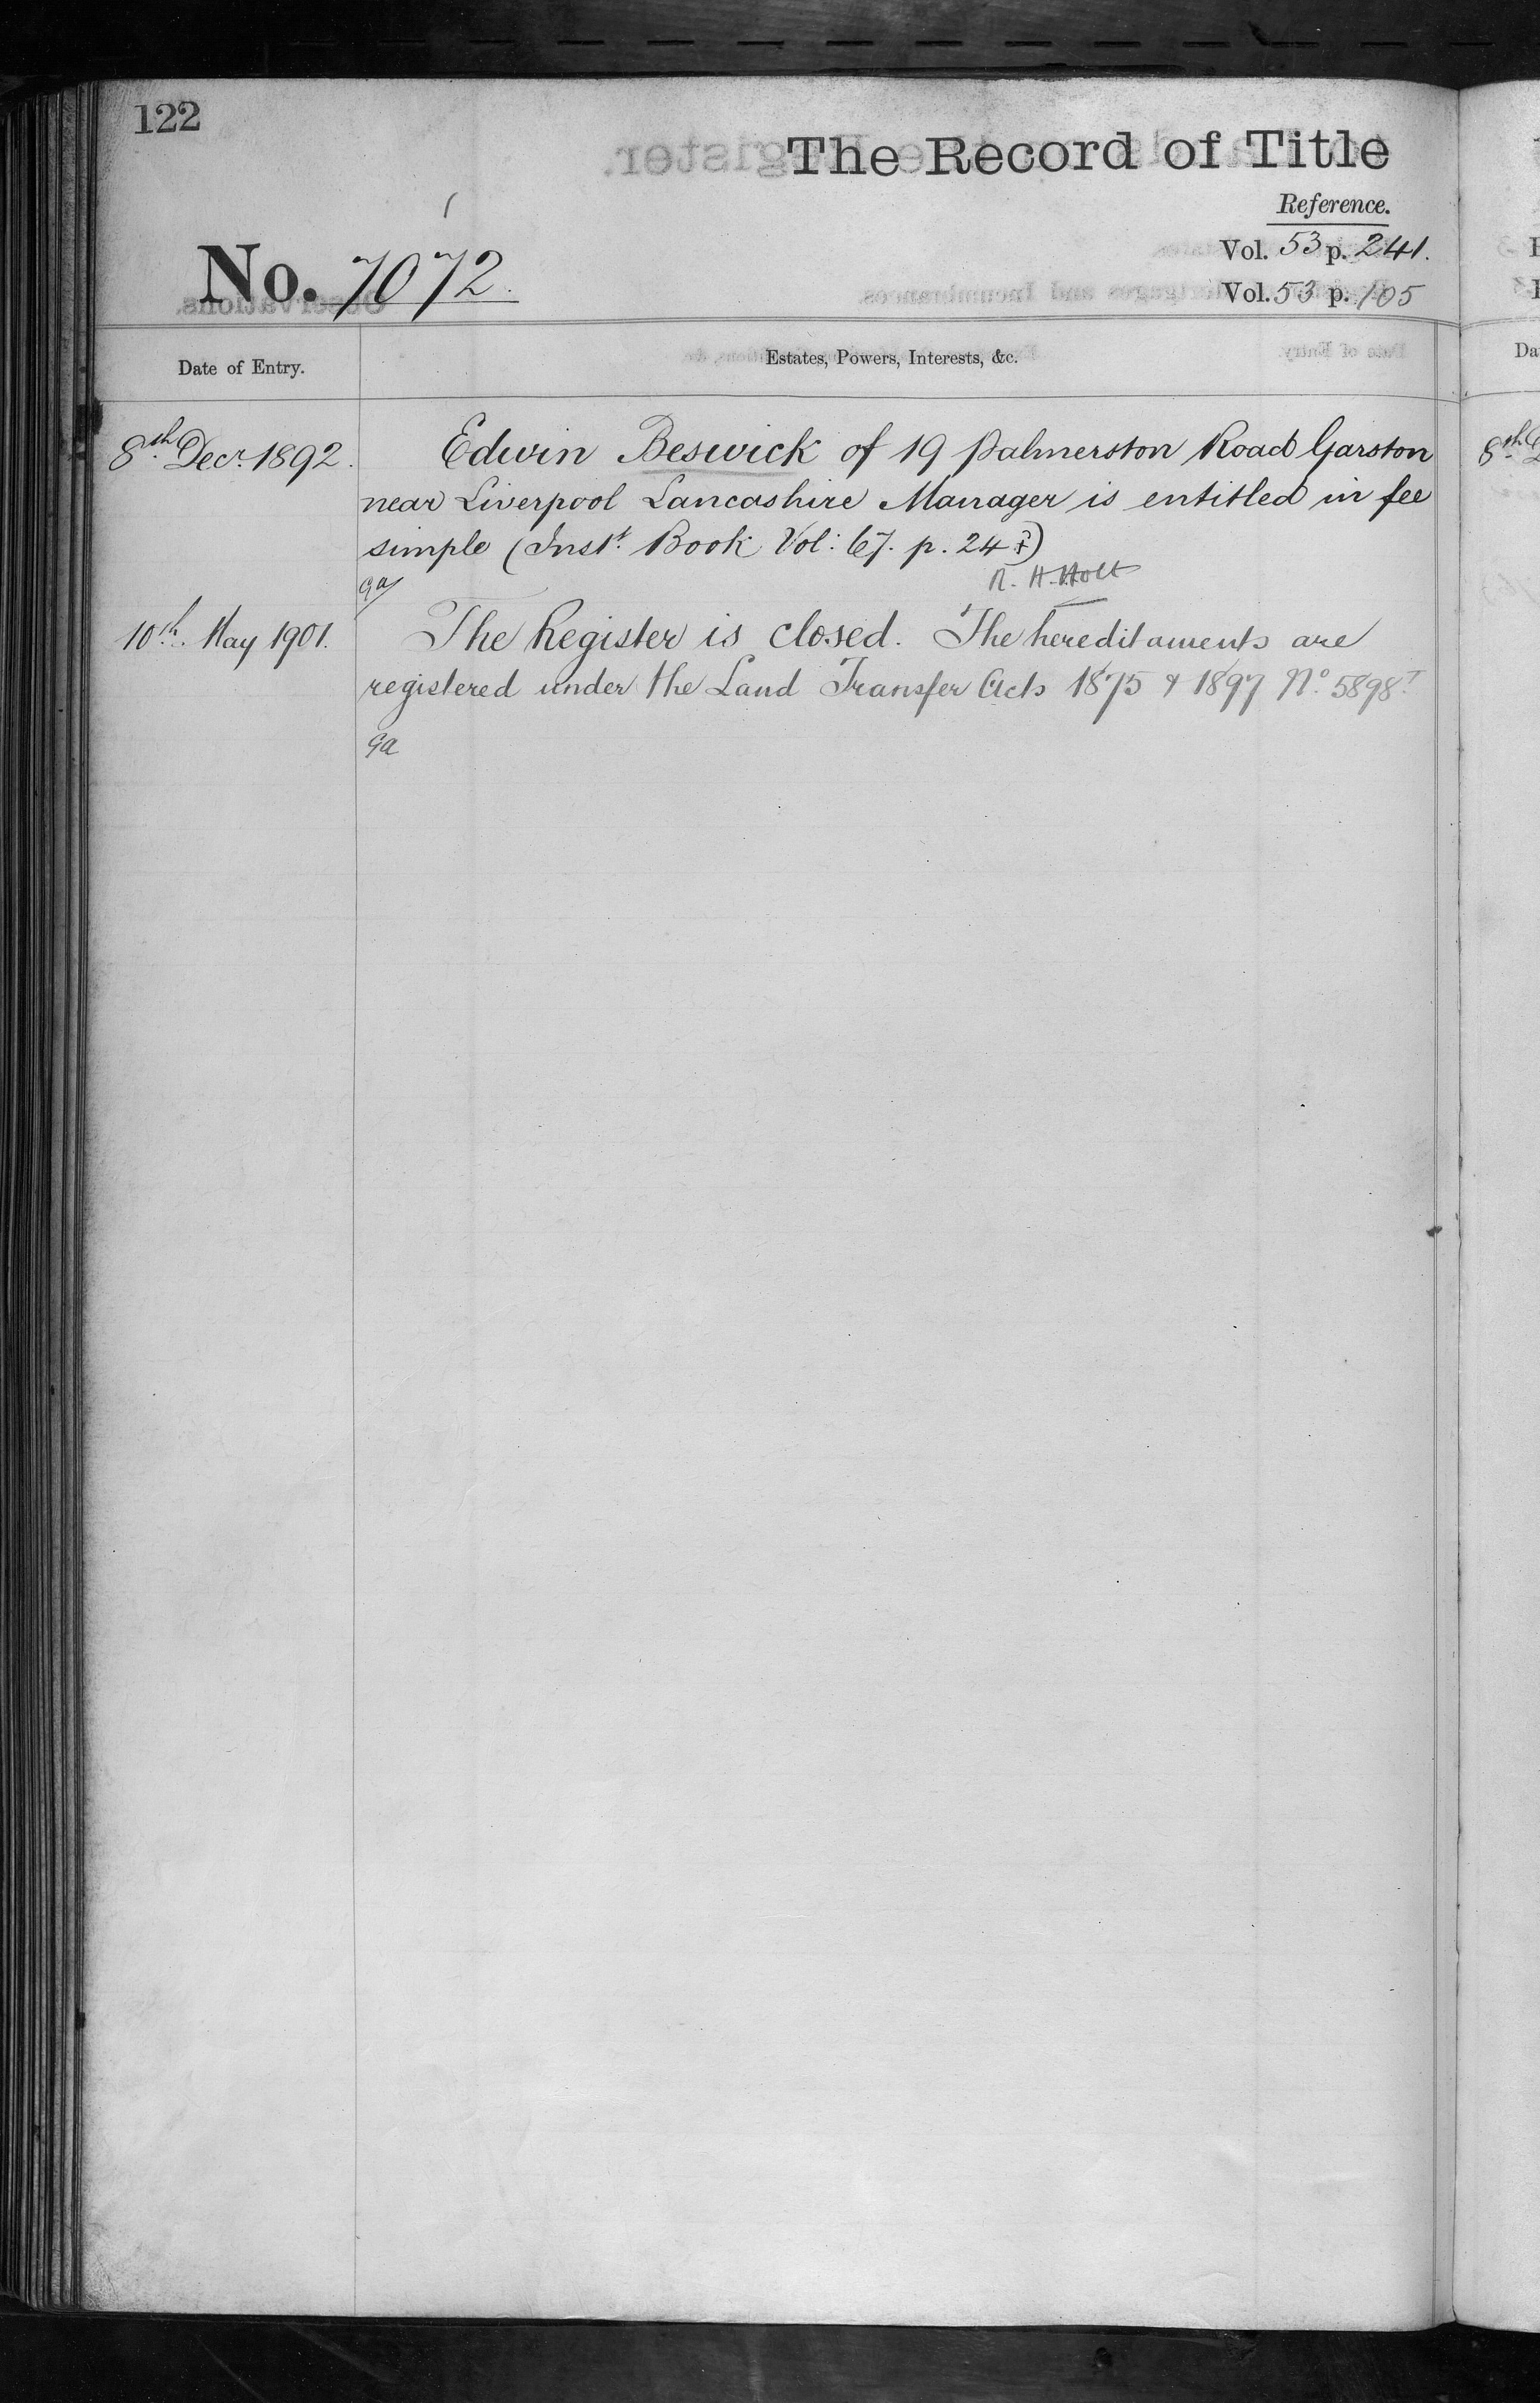 122
The Record of Title
Reference.
No. 7072.
Vol. 53 p. 241.
Vol. 53 p. 105
Date of Entry.
Estates, Powers, Interests, &c.
8th. Decr. 1892.
Edwin Beswick of 19 Palmerston Road Garston
near Liverpool Lancashire Manager is entitled in fee
simple (Inst. Book Vol: 67. p. 24
R. H. Holt
10th. May 1901.
The Register is closed. The hereditaments are
registered under the Land Transfer Acts 1875 & 1897 No. 5898
ga